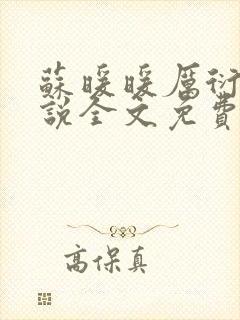 蘇暖暖厲衍
說全文免費
高保真